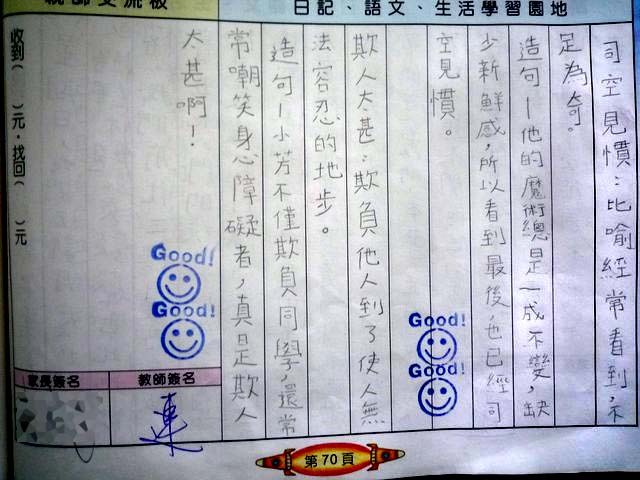 親師交流板
日記、語文、生活學習園地
司空見慣：比喻經常看到，不
足為奇。
造句—他的魔術總是一成不變，缺
少新鮮感，所以看到最後，也已經司
空見慣。
欺人太甚：欺負他人到了使人無
法容忍的地步。
造句—小芳不僅欺負同學，還常
常嘲笑身心障礙者，真是欺人
太甚啊！
收到（ ）元，找回（ ）元
Good!
Good!
Good!
Good!
家長簽名
教師簽名
連
第70頁